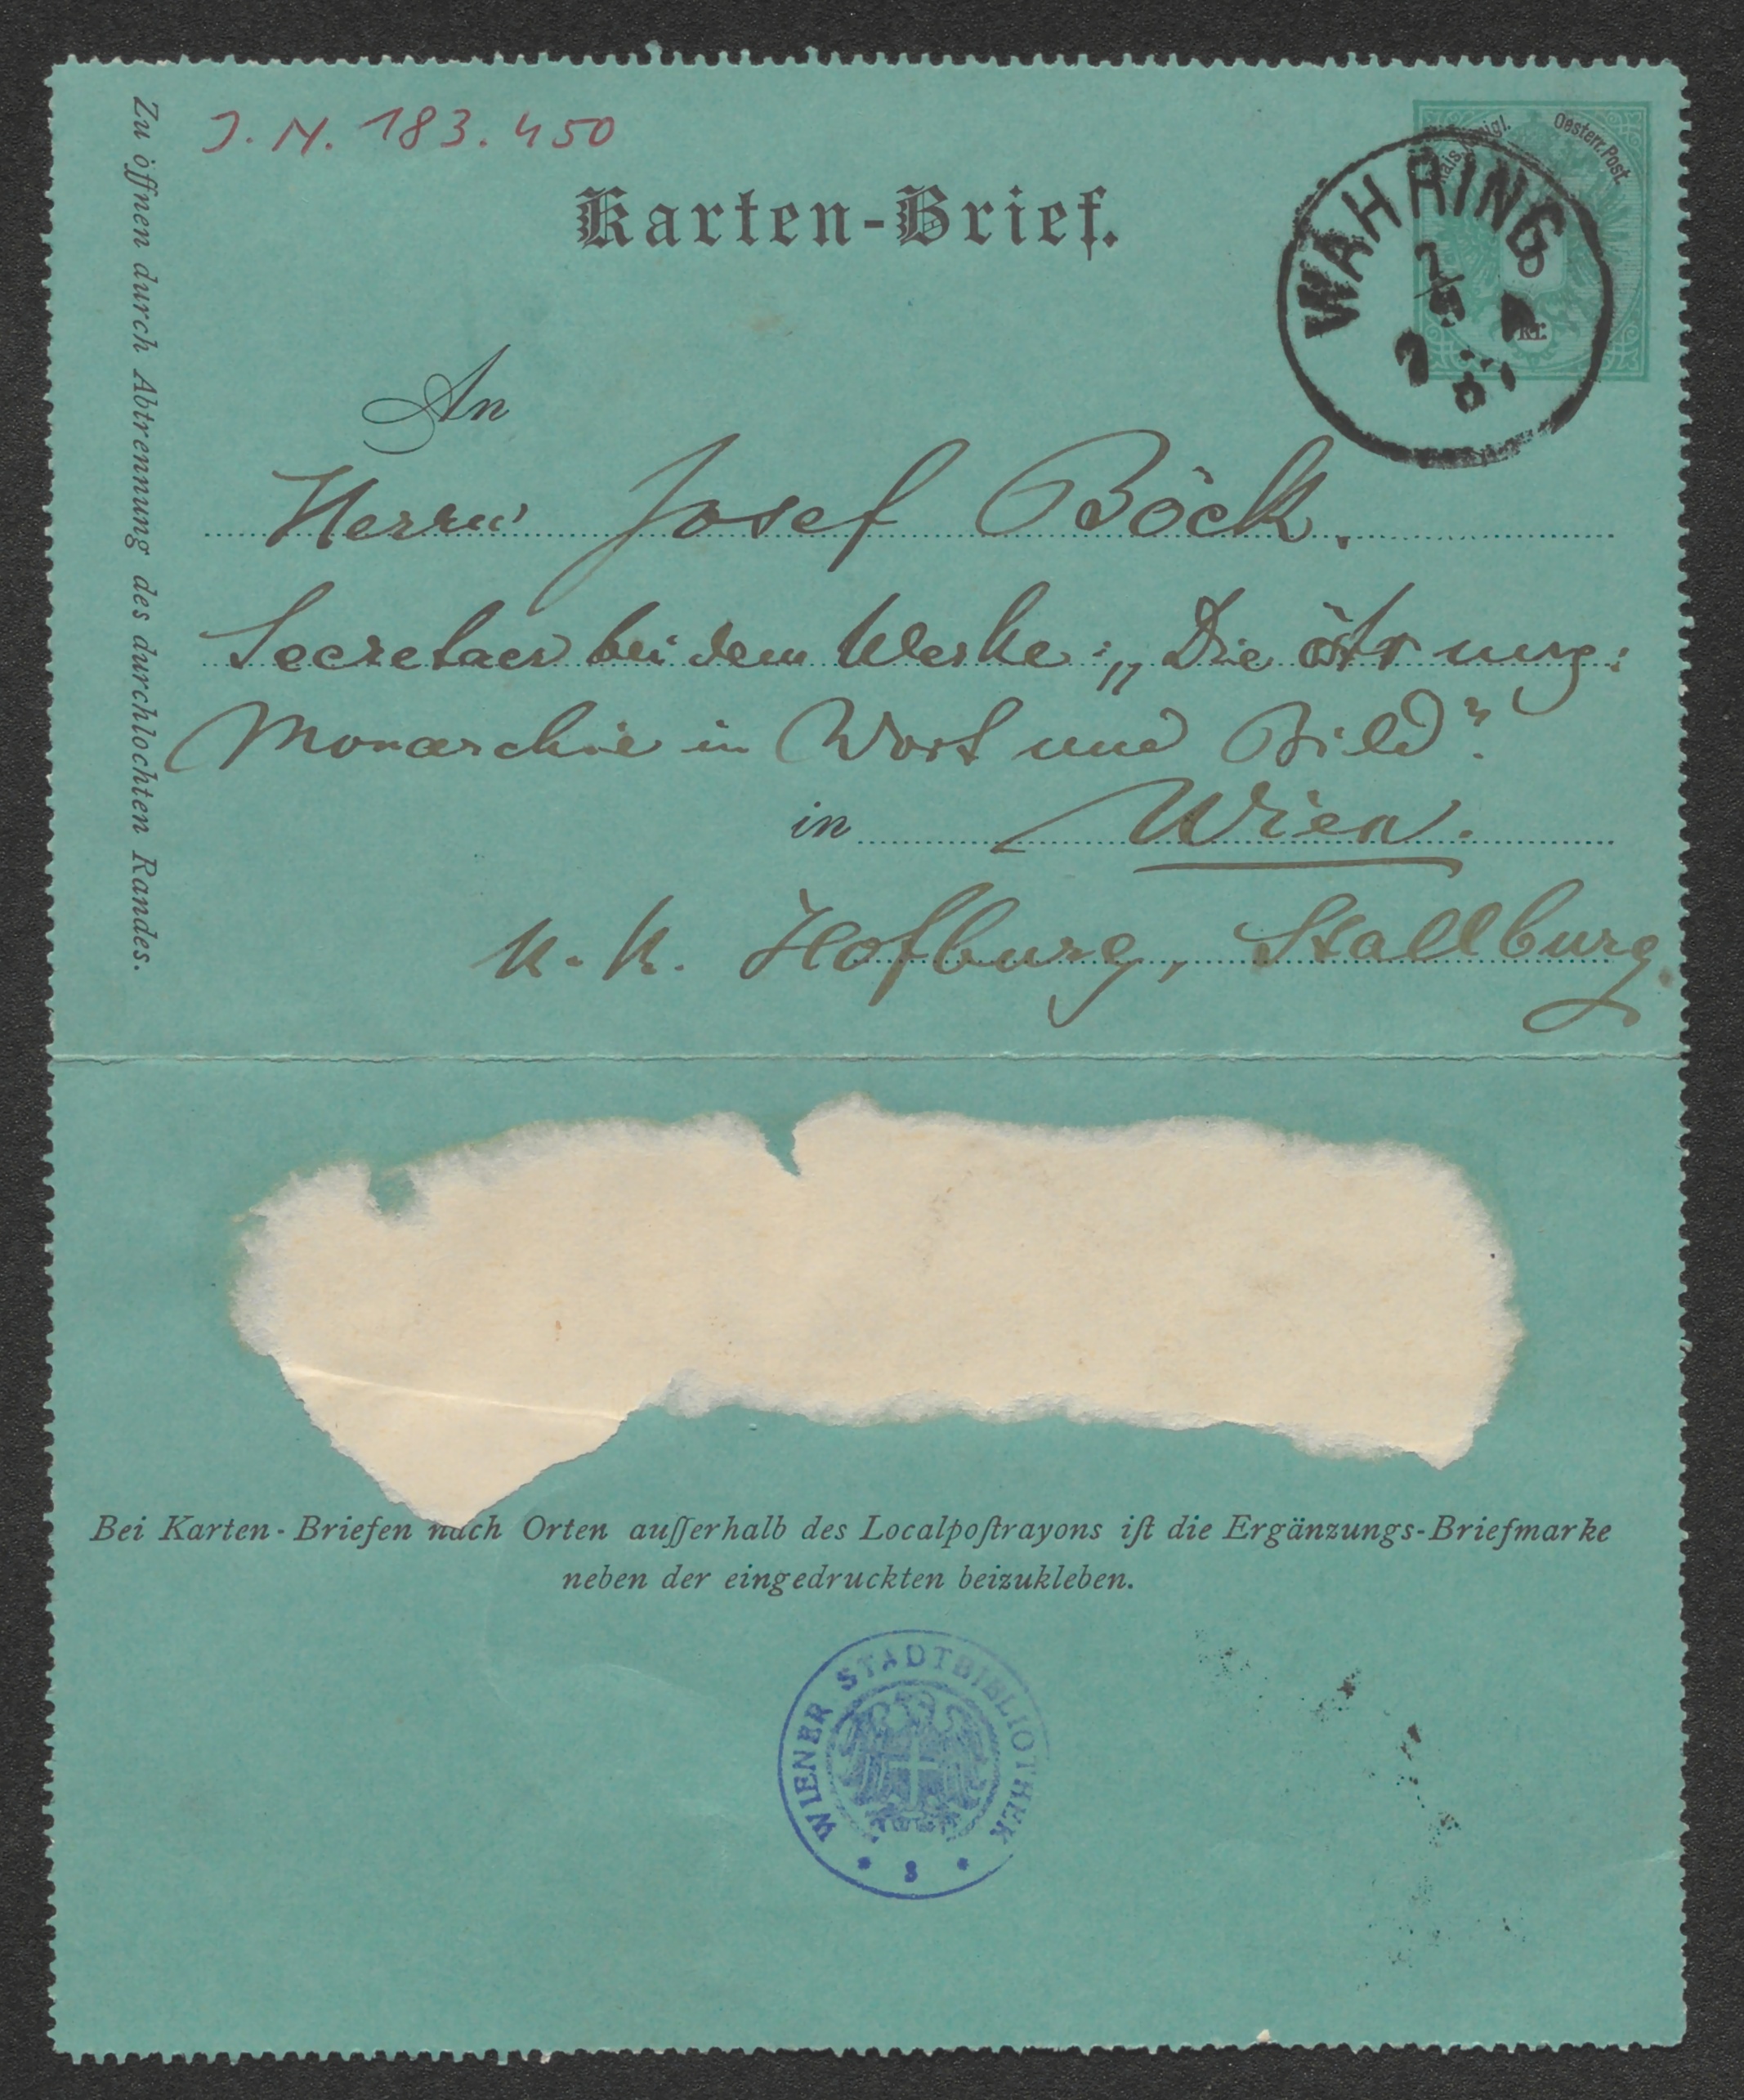 J. N. 183.450
Karten-Brief.
Kais. Königl. Oesterr. Post.
WÄHRING
kr.
Zu öffnen durch Abtrennung des durchlochten Randes.
An
Herrn Josef Böck.
Secretaer bei dem Werke: „Die östr ung:
Monarchie in Wort und Bild".
in Wien.
K. K. Hofburg, Stallburg
Bei Karten-Briefen nach Orten auſſerhalb des Localpoſtrayons iſt die Ergänzungs-Briefmarke
neben der eingedruckten beizukleben.
WIENER STADTBIBLIOTHEK
* 8 *